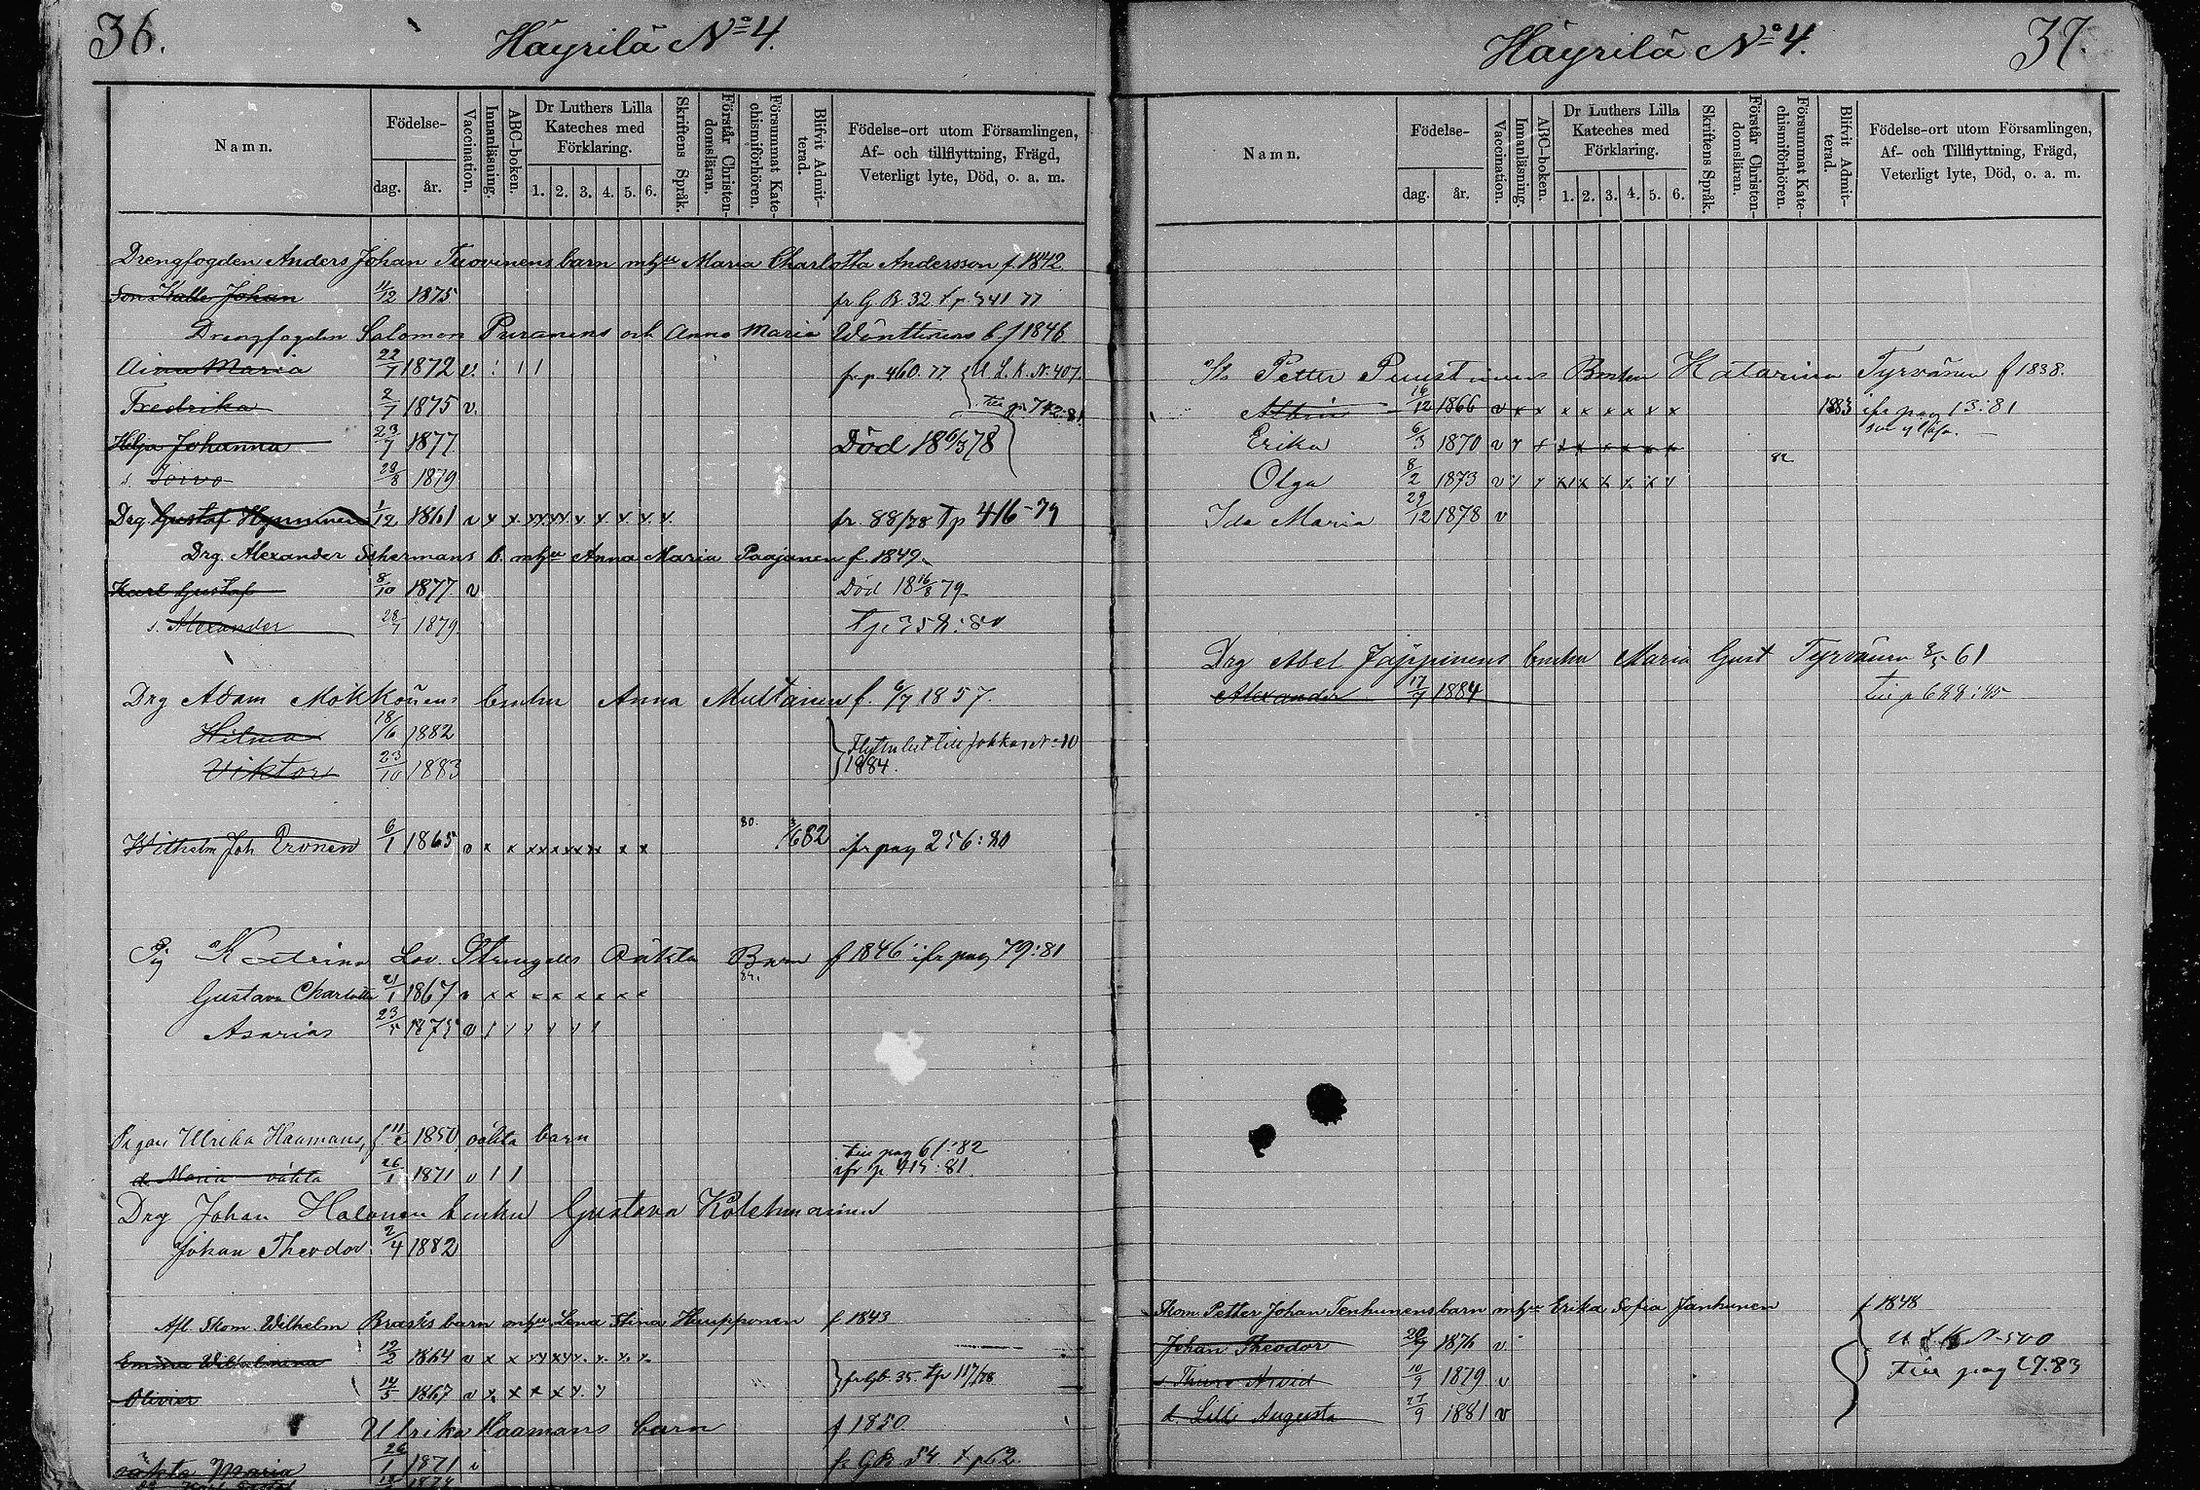 36.
Häyrilä No 4.
Namn.
Födelse-
dag. år.
Vaccination.
Innanläsning.
ABC-boken.
Dr Luthers Lilla
Kateches med
Förklaring.
1. 2. 3. 4. 5. 6.
Skriftens Språk.
Förstår Christen-
domsläran.
Försummat Kate-
chismiförhören.
Blifvit Admit-
terad.
Födelse-ort utom Församlingen,
Af- och tillflyttning, Frägd,
Veterligt lyte, Död, o. a. m.
Drengfogden Anders Johan Tuovinens barn mhu Maria Charlotta Andersson f 1842
Son Kalle Johan 11/12 1875 fr G B. 32. t p. 341 77
Drengfogden Salomon Puranens och Anna Maria b. f 1846
Aina Maria 22/7 1872 v. fr p. 460. 77. U L. K. N. 407.
Fredrika 2/7 1875 v. till p 742.81
Helja Johanna 23/7 1877 Död 18 6/3 78
s Toivo 28/8 1879
Drg Gustaf Hynninen 1/12 1861 v x x xx xx x x. x. x. x. fr. 88/78 Tp 416-79
Drg. Alexander b. mhu Anna Maria Paajanen f. 1849
Karl Gustaf 8/10 1877 v Död 18 16/8 79
s. Alexander 28/7 1879 Tp 358:80
Drg Adam Mökkönens Anna Multainen f. 6/7 1857.
Hilma 18/6 1882
Viktor 23/10 1883 1884.
Wilhelm Joh Eronen 6/1 1865 v x x xx xx xx x x 80. 3/6 82 ifr pag 256:80
Pig Katrina Lov. Oäkta Barn f 1846 ifr pag 79:81
84.
Gustava Charlotta 21/1 1867 v x x x x x x x x
Asarias 23/5 1875 v
Pigan Ulrika Haamans, f 11/2 1850 oäkta barn till pag 61:82
d. Maria oäkta 26/1 1871 v 1 1 ifr p 415:81
Drg Johan Halonen Gustava Kolehmainen
Johan Theodor 2/4 1882
Afl. Skom Wilhelm Brasks barn mhu Lena Stina Hupponen f 1843
Emma Wilhelmina 12/2 1864 v x x xx xx. x. x. x.
Olivier 14/5 1867 v x. x x x x. x fr Gb. 35. tp 117/78
Ulrika Haamans barn f 1850.
oäkta Maria 26/1 1871 v fr GB 54. t p 62.
37.
Häyrilä No 4.
Namn.
Födelse-
dag. år.
Vaccination.
Innanläsning.
ABC-boken.
Dr Luthers Lilla
Kateches med
Förklaring.
1. 2. 3. 4. 5. 6.
Skriftens Språk.
Förstår Christen-
domsläran.
Försummat Kate-
chismiförhören.
Blifvit Admit-
terad.
Födelse-ort utom Församlingen,
Af- och Tillflyttning, Frägd,
Veterligt lyte, Död, o. a. m.
Petter Puustinens Katarina Tyrvänen f 1838.
Albin 16/12 1866 v x x x x x x x x 1883 ifr pag 13:81
Erika 6/3 1870 v x x x x x x x x
82
Olga 8/2 1873 v x x x x x x x x
Ida Maria 29/12 1878 v
Drg Abel Jäppinens Maria Gust Tyrvänen 2/5 61
Alexander 17/9 1884 till p 622:85
Skom. Petter Johan Tenhunens barn mhu Erika Sofia Janhunen f 1848
Johan Theodor 20/7 1876 v U L K N-500
s Thure Arvid 10/9 1879 v till pag 27.83
d. Lilli Augusta 27/9 1881 v